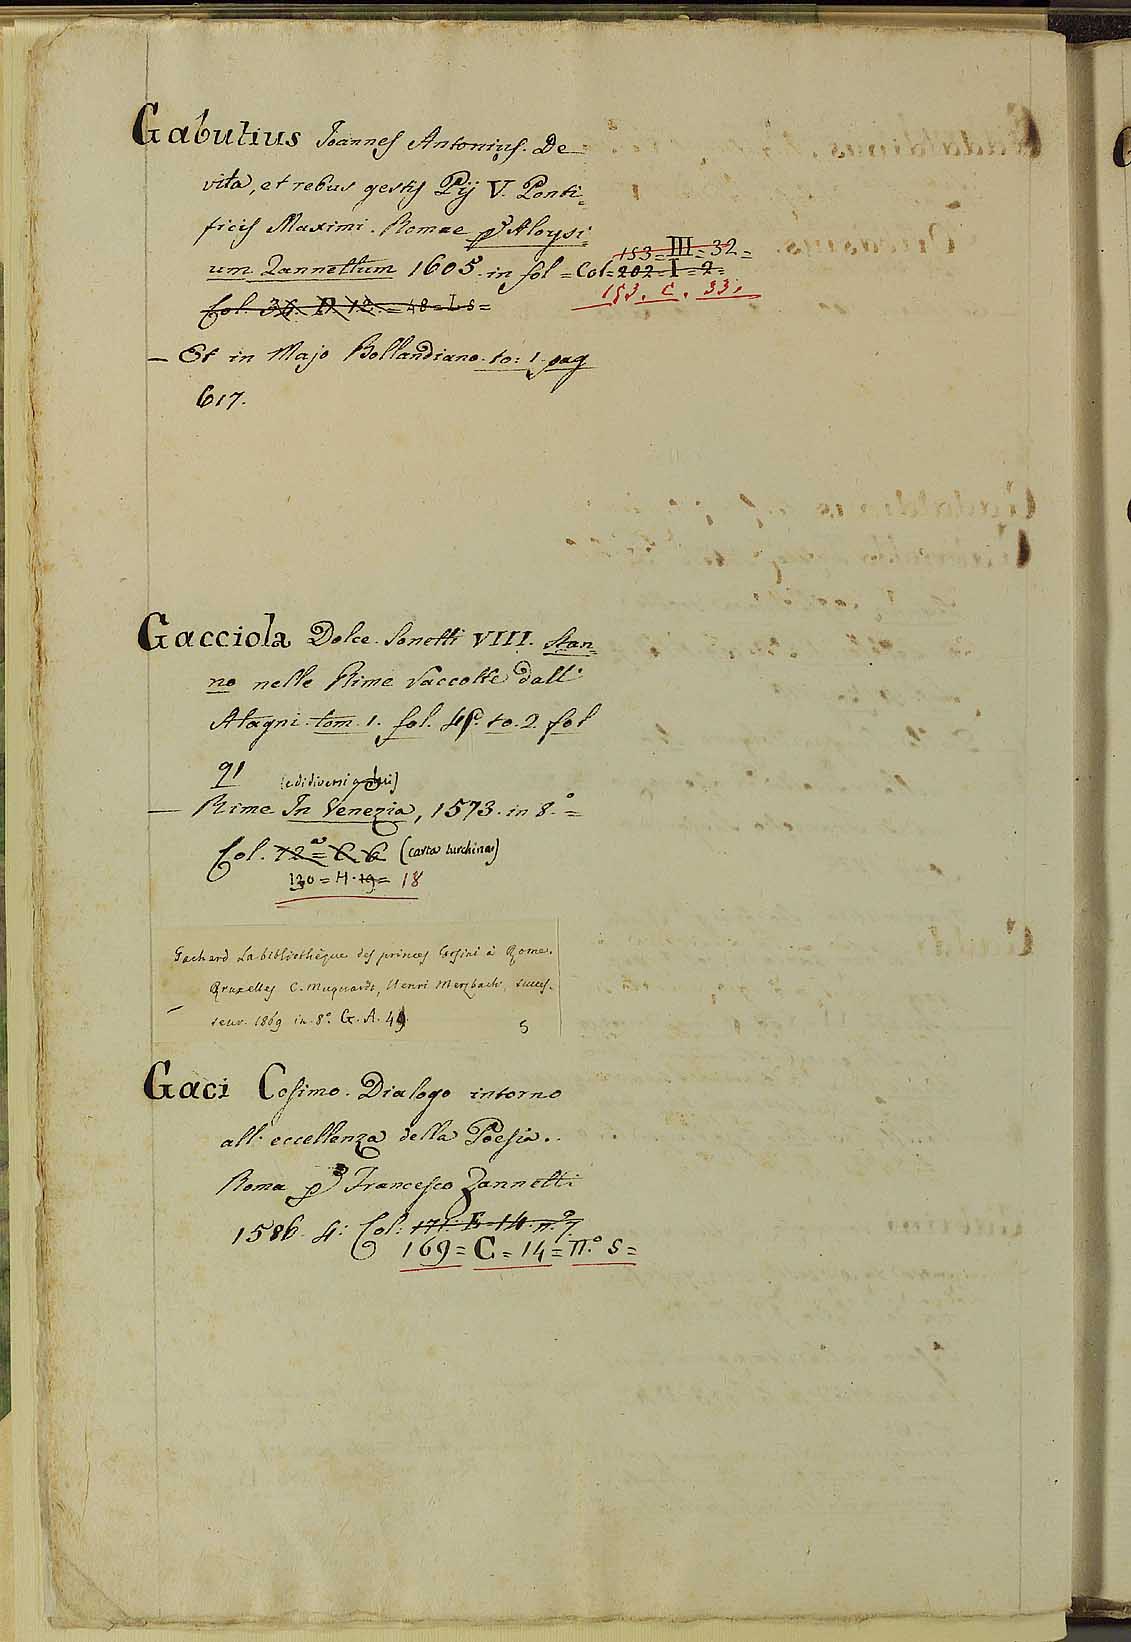 Gabutius Joannes Antonius. De
vita, et rebus gestis Pij V. Ponti-
ficis Maximi. Romae p Aloysi-
um Zannettum 1605. in fol = Col = 202 = I = 2 =
153 = III = 32 =
153. C. 33.
Col. = 48 = L 5 =
— Et in Majo Bollandiano. to: 1. pag
617.
Gacciola Dolce. Sonetti VIII. stan-
no nelle Rime raccolte dall'
Atagni. tom. 1. fol. to. 2. fol
91
(e di diversi)
— Rime In Venezia, 1573. in 8.° =
Col. 12 = C. 6 (carta turchina)
130 = H. 19 = 18
Gachard La bibliothèque des princes Corsini à Rome.
Bruxelles C. Muquardt, Henri Merzbach, succes-
seur. 1869 in. 8°. G. A. 49
5
Gaci Cosimo. Dialogo intorno
all' eccellenza della Poesia.
Roma p Francesco Zannetti
1586. 4: Col: 171. E. 14. n.° 7.
169 = C = 14 = n.° 5 =